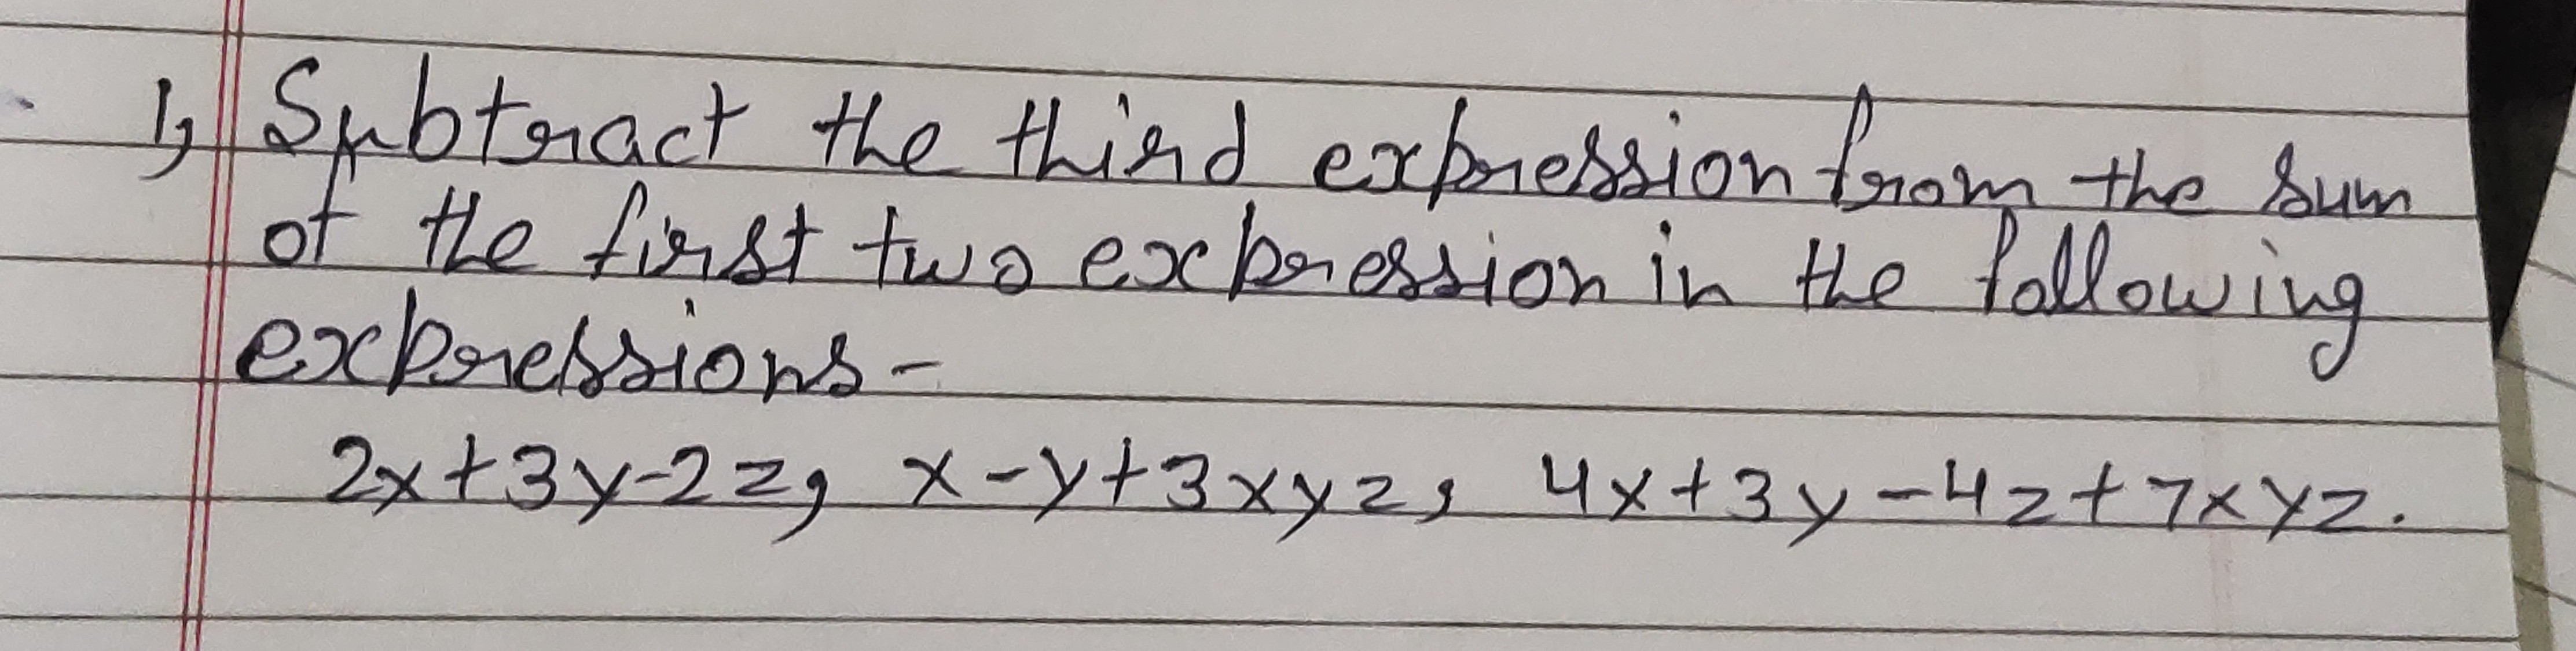 1, Subtract the third expression from the sum
of the first two expression in the following
expressions-
2x+3y-2z, x-y+3xyz, 4x+3y-4z+7xyz.